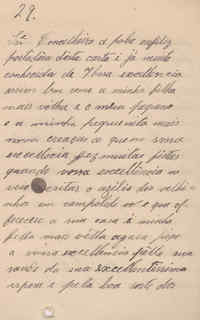 29.
Snr Conselheiro a pobre infeliz
portadora desta carta é já muito
conhecida de Vossa excelencia
assim bem como a minha filha
mais velha e o meu pequeno
e a minha pequenita mais
nova creança a quem vossa
excellencia fez muitas festas
quando vossa excellencia
vesitar o azilio dos velhi-
nhos em campolide e que of-
fereceu a sua casa á minha
filha mais velha agora, pesso
a vossa excellencia pella sua
saude da sua excellentissima
espoza e pela boa sorte dos